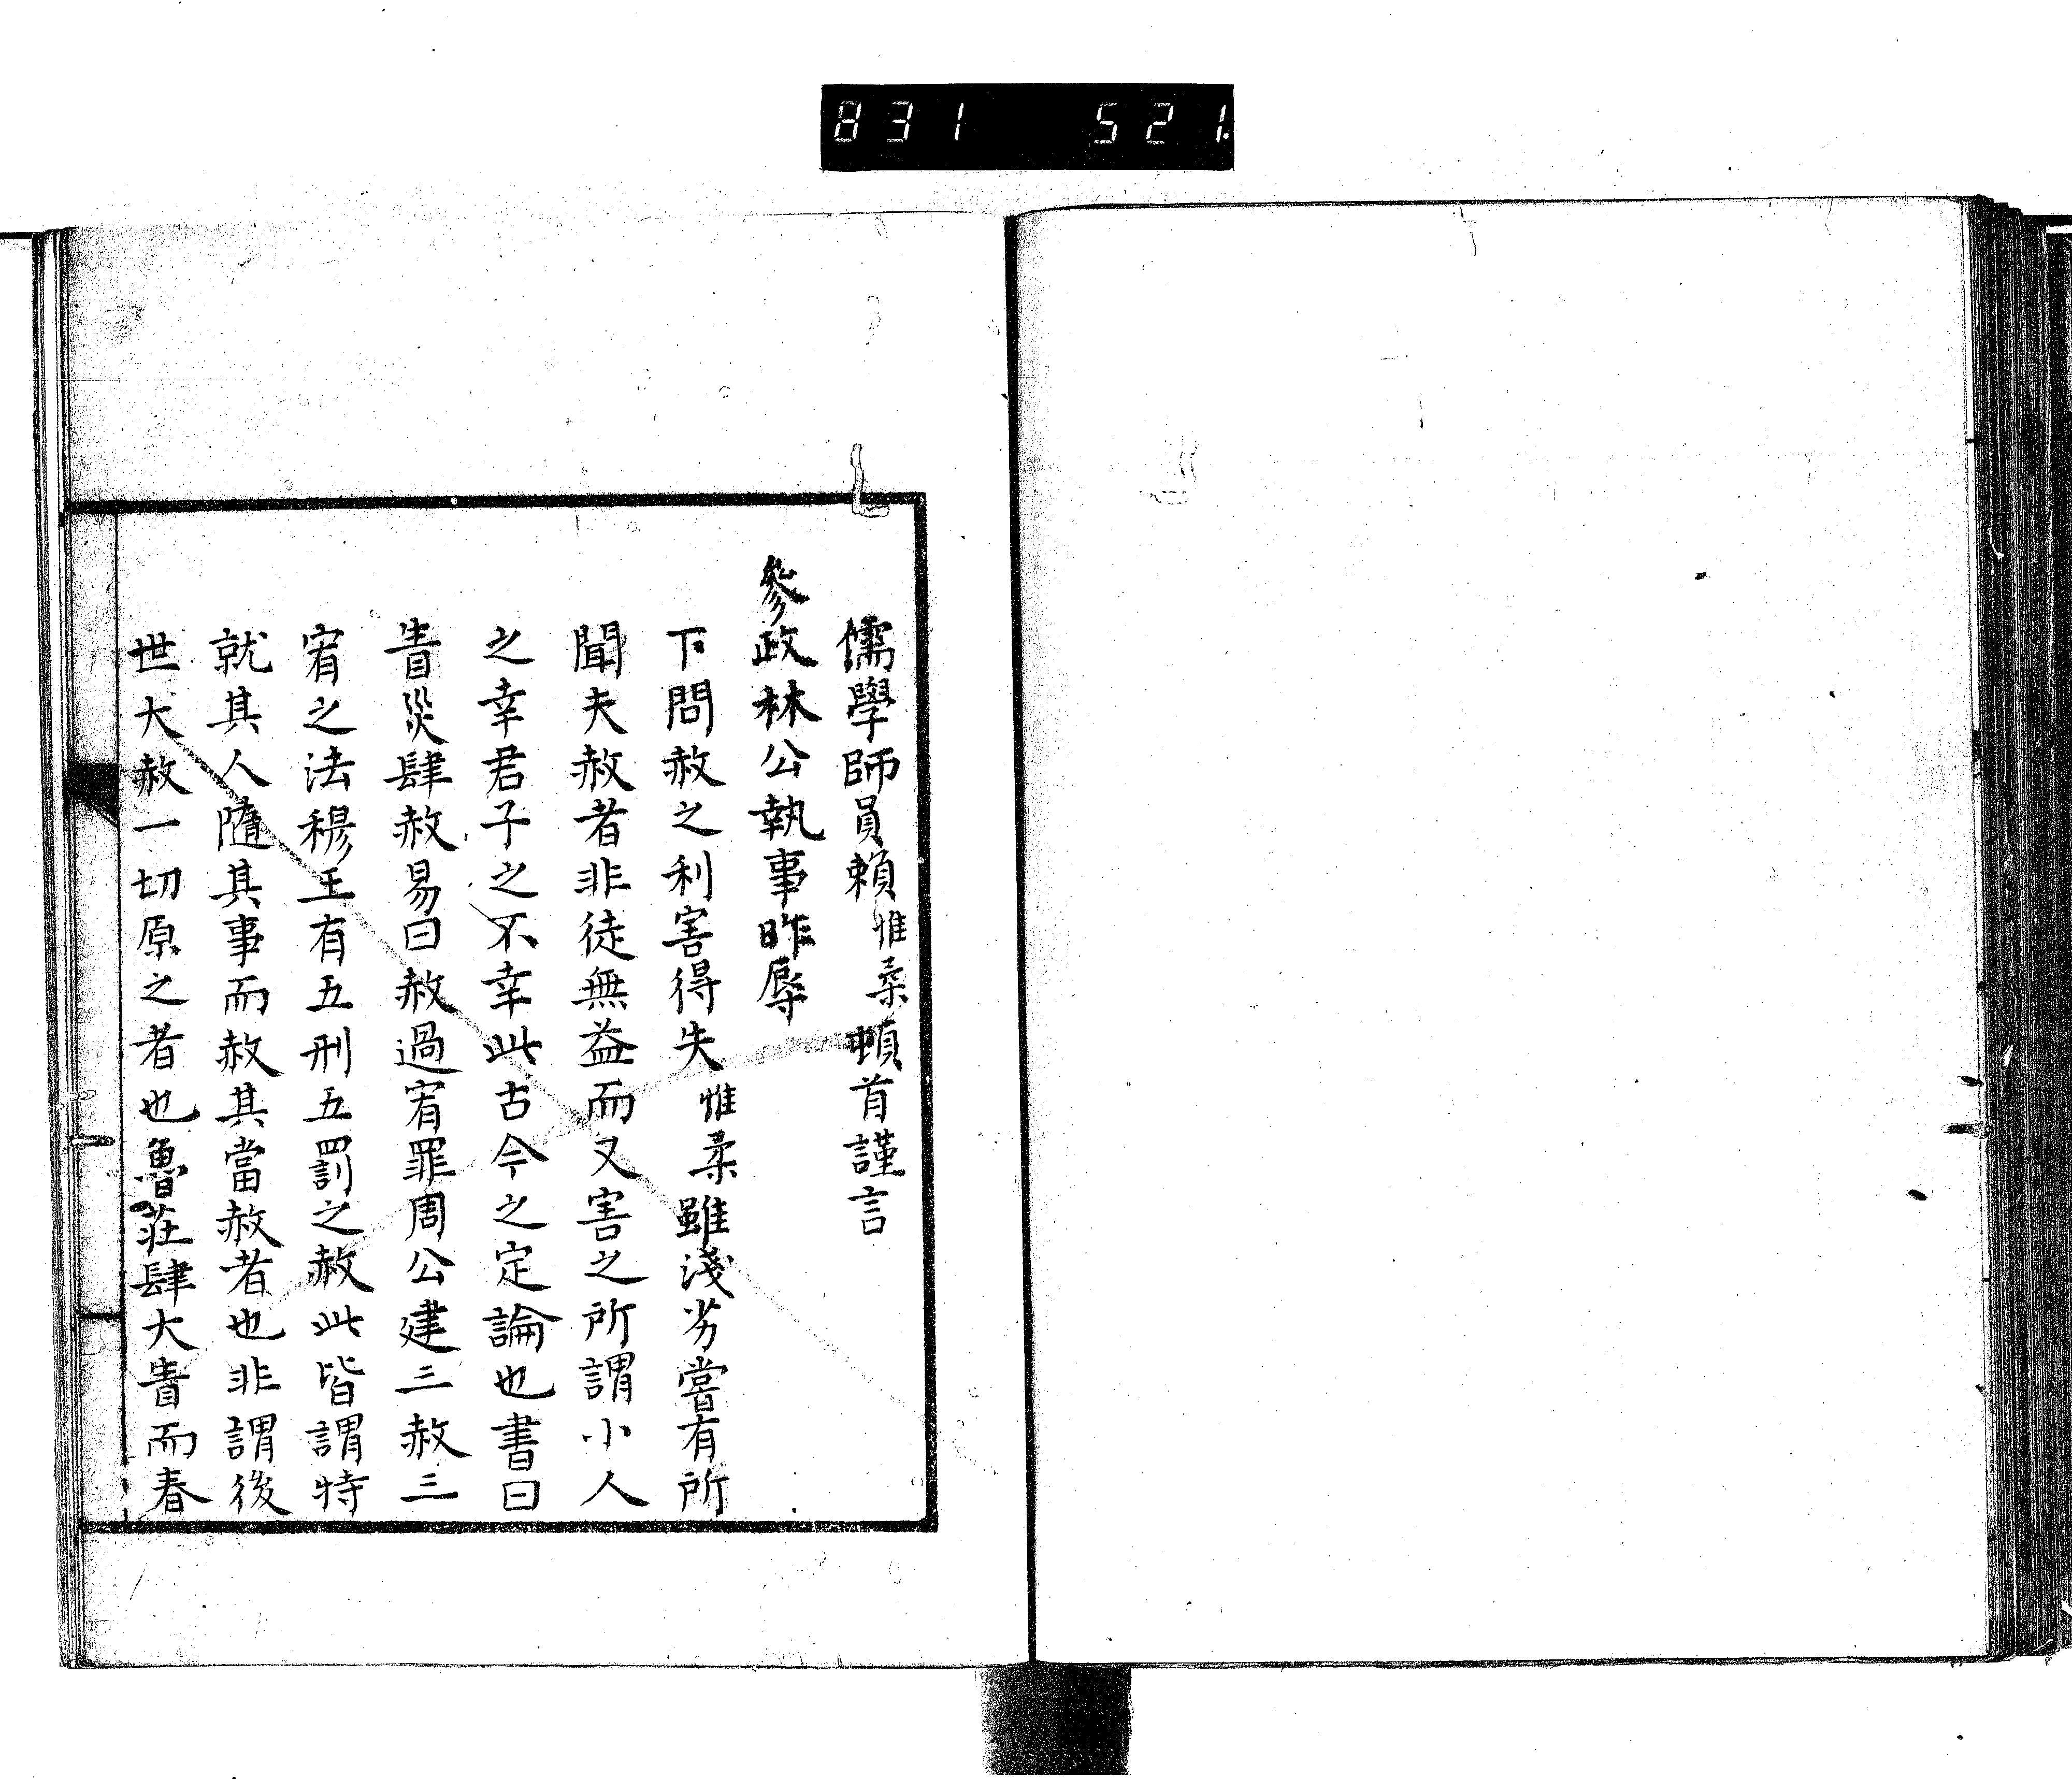 831 521.
儒學師員賴惟柔頓首謹言
參政林公執事昨辱
下問赦之利害得失惟柔雖淺劣嘗有所
聞夫赦者非徒無益而又害之所謂小人
之幸君子之不幸此古今之定論也書曰
眚災肆赦易曰赦過宥罪周公建三赦三
宥之法穆王有五刑五罰之赦此皆謂特
就其人隨其事而赦其當赦者也非謂後
世大赦一切原之者也魯莊肆大眚而春